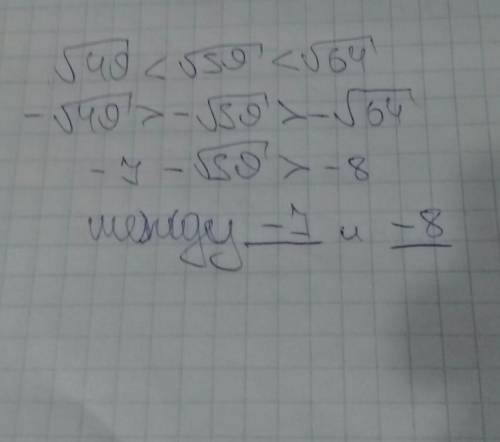 √49 < √59 < √64
-√49 > -√59 > -√64
-7 -√59 > -8
между -7 и -8